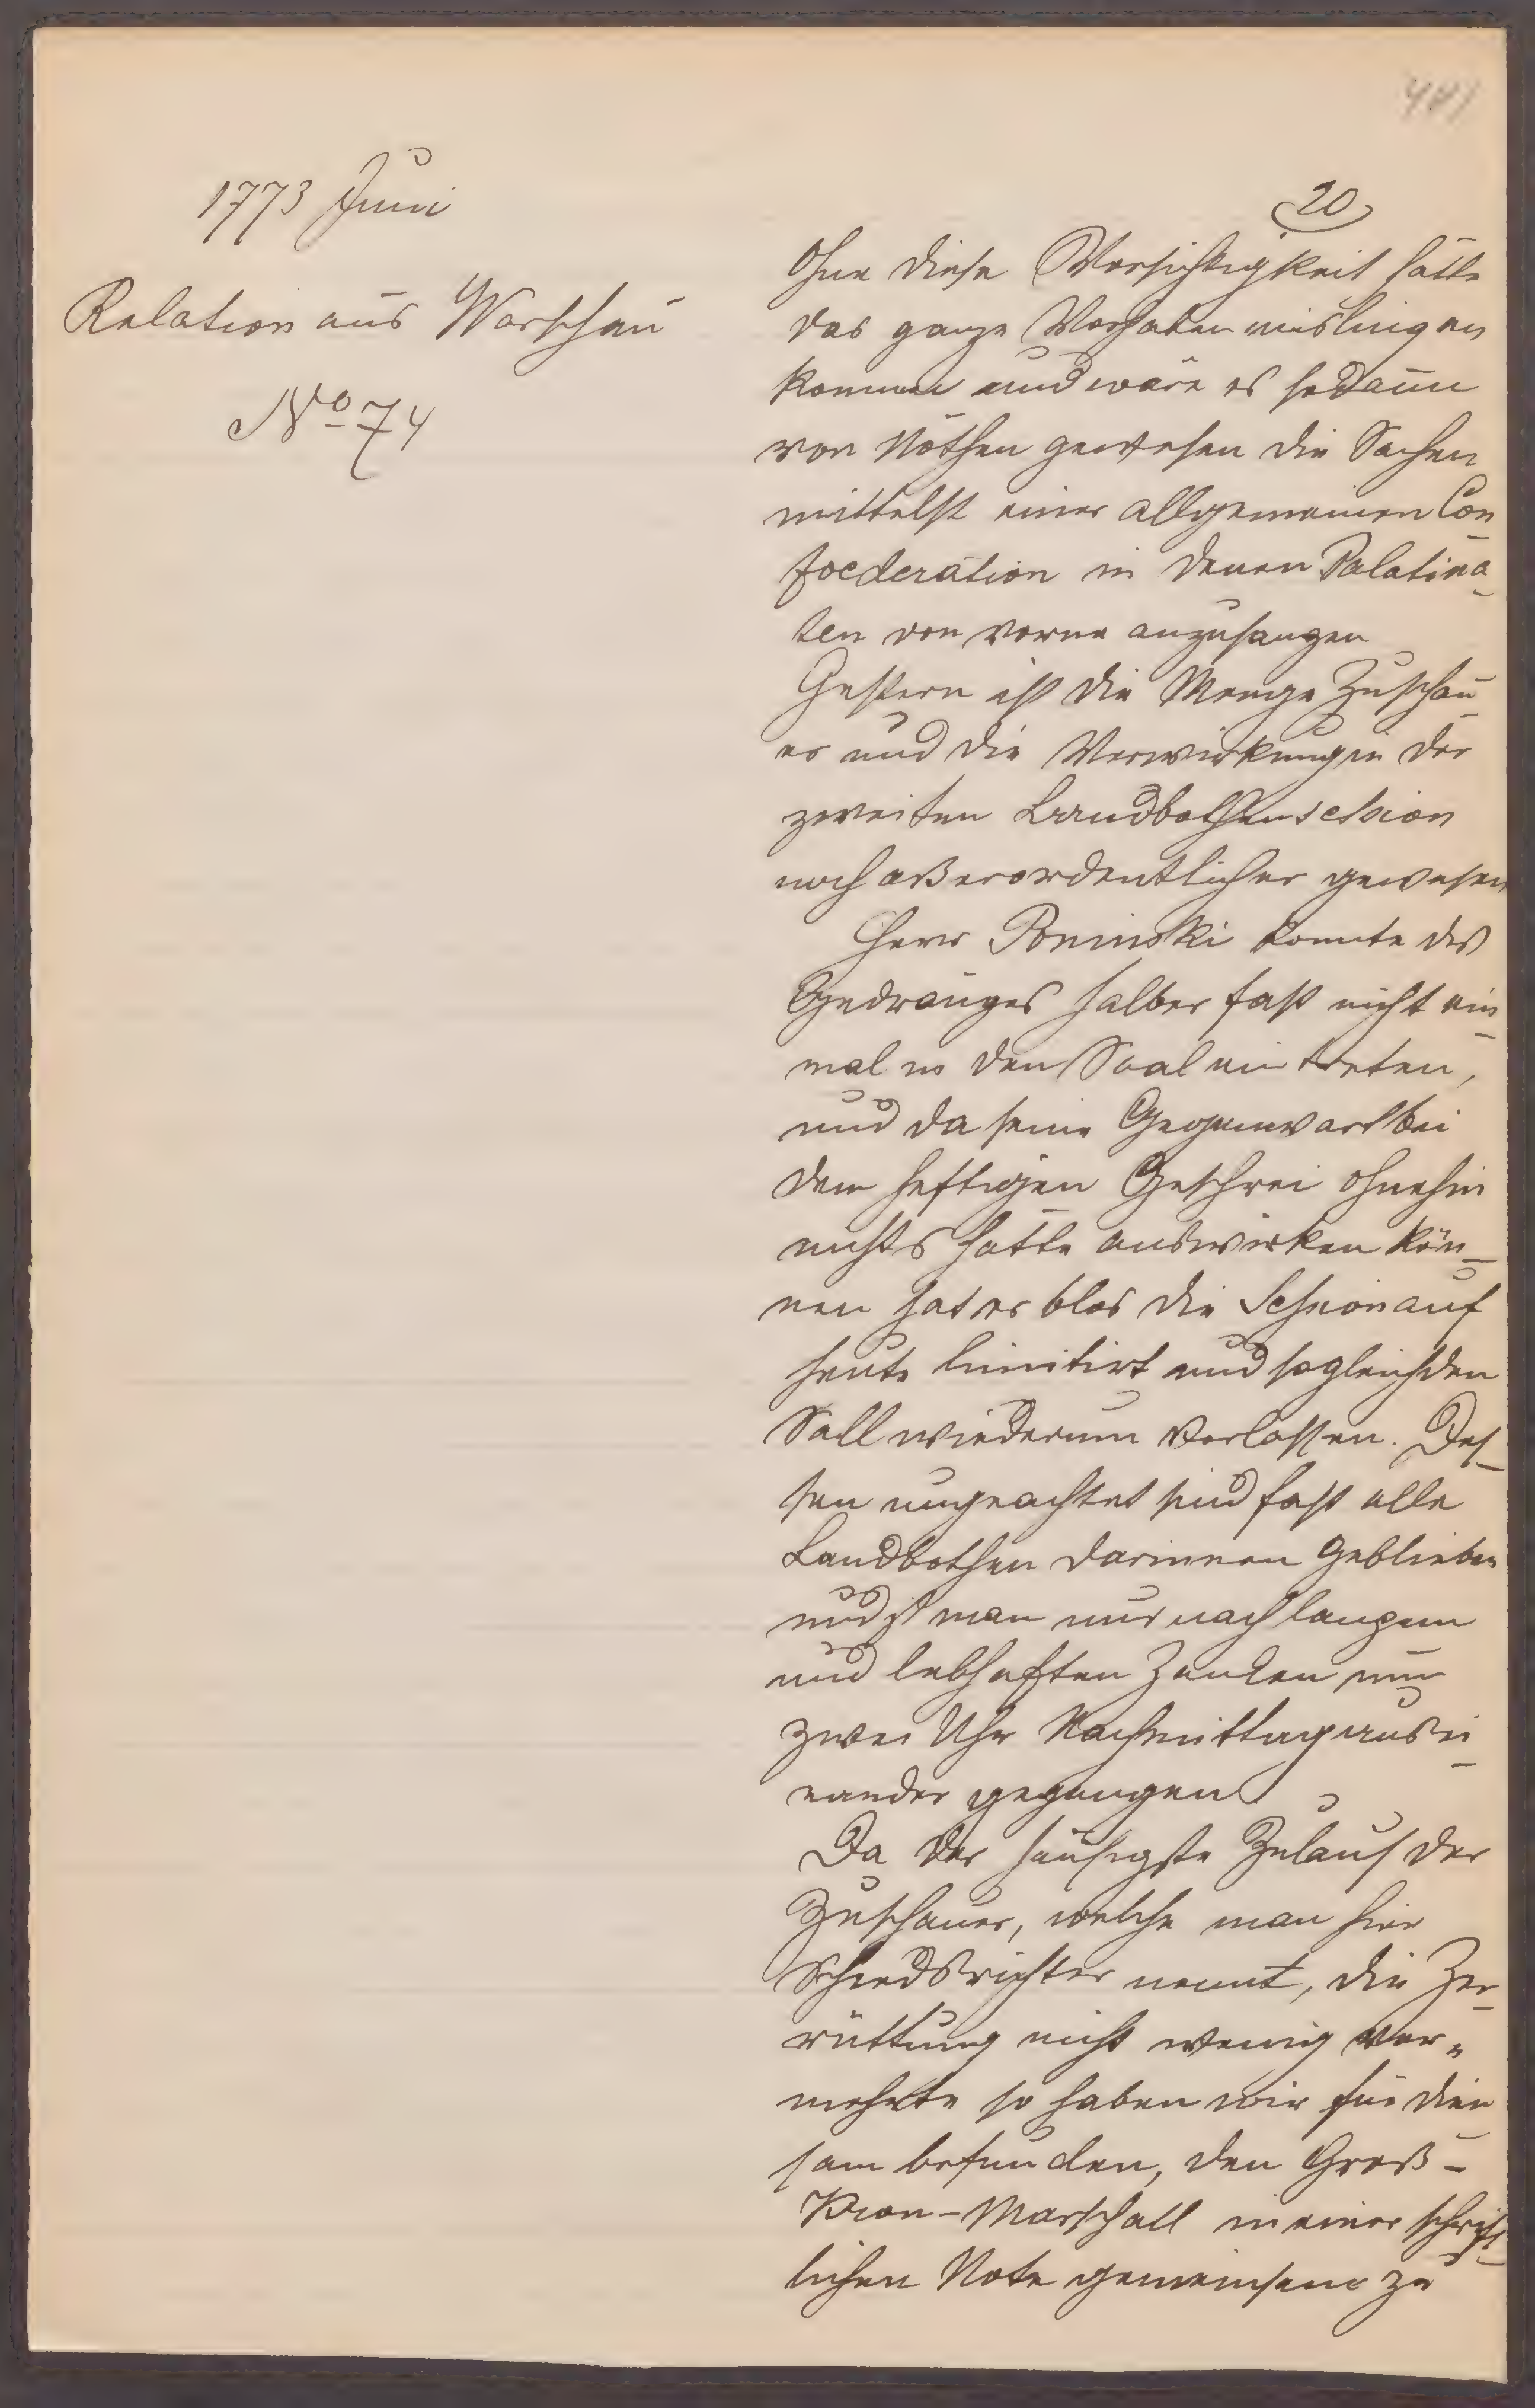 1773 Juni
Relation aus Warschau
No 74
20
Ohne diese Vorsichtigkeit hätte
das ganze Vorhaben mislingen
können und wäre es sodann
von Nöthen gewesen die Sachen
mittelst einer allgemeinen Con-
foederation in denen Palatina-
ten von vorne anzufangen
Gestern ist die Menge Zuschau-
er und die Verwirkung in der
zweiten Landbothensession
noch außerordentlicher gewesen
Herr Poninski konnte des
Gedränges halber fast nicht ein-
mal in den Saal eintreten,
und da seine Gegenwart bei
dem heftigen Geschrei ohnehin
nichts hätte auswirken kön-
nen hat er blos die Session auf
heute limitirt und sogleich den
Sall wiederum verlassen. Des-
sen ungeachtet sind fast alle
Landbothen darinnen geblieben
und ist man nur nach langem
und lebhaften Zanken um
zwei Uhr Nachmittag ausei-
nander gegangen.
Da der häufigste Zulauf der
Zuschauer, welche man hier
Schiedsrichter nennt, die Zer-
rüttung nicht wenig ver-
mehrte so haben wir für dien
sam befunden, den Groß-
Kron-Marschall in einer schrift-
lichen Note gemeinsam zu